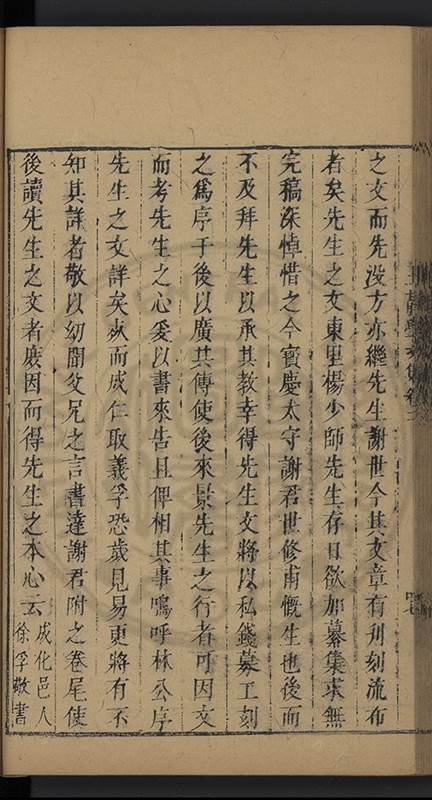 之文而先没方亦繼先生謝世今其文章有刋刻流布
者矣先生之文東里楊少師先生存日欲加纂集求無
完稿深悼惜之今寳慶太守謝君世修甫慨生也後而
不及拜先生以承其教幸得先生文將以私錢募工刻
之爲序于後以廣其傳使後來景先生之行者可因文
而考先生之心爰以書來告且俾相其事嗚呼林公序
先生之文詳矣然而成仁取義孚恐歲月易更將有不
知其詳者敬以幼聞父兄之言書達謝君附之卷尾使
後讀先生之文者庶因而得先生之本心云
成化邑人
徐孚敬書